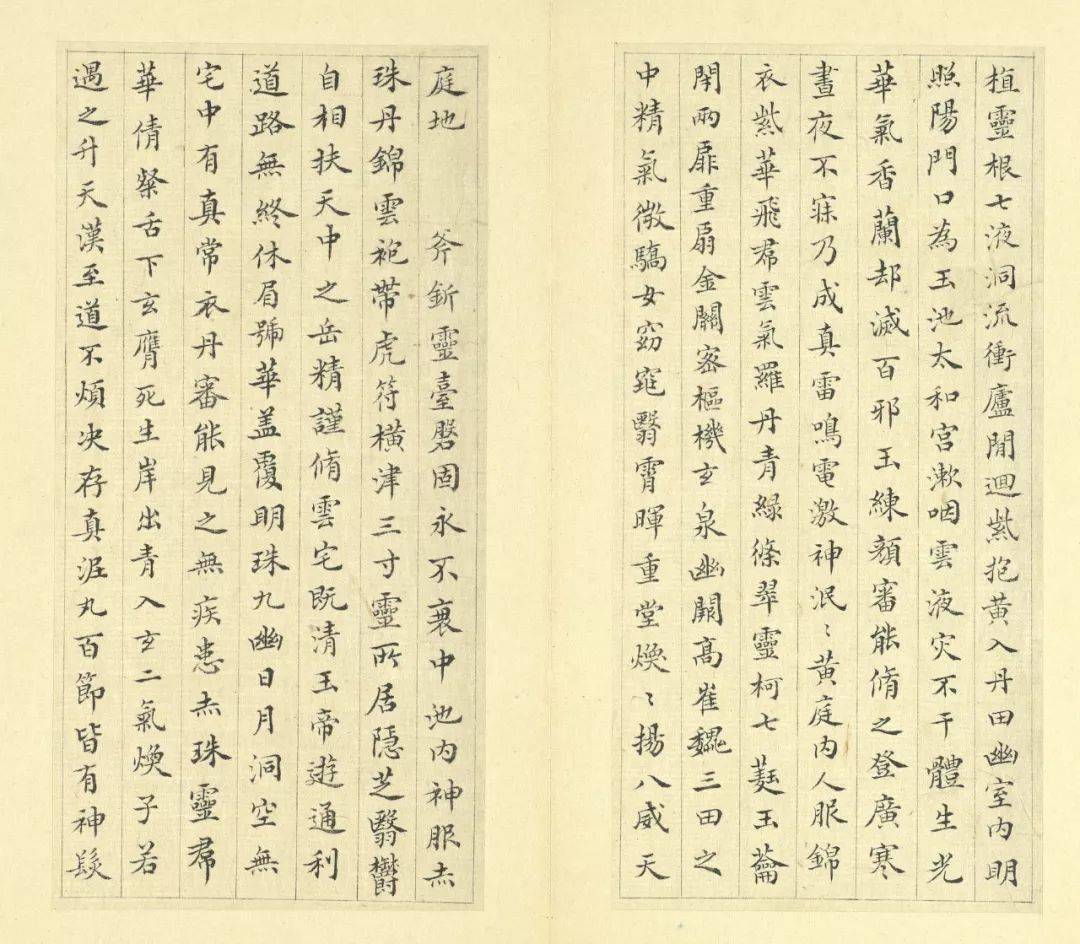 植靈根七液洞流衝廬間迴紫抱黃入丹田幽室內明
照陽門口為玉池太和宮漱咽雲液灾不干體生光
華氣香蘭却滅百邪玉練顏審能脩之登廣寒
晝夜不寐乃成真雷鳴電激神泯〻黃庭內人服錦
衣紫華飛帬雲氣羅丹青綠條翠靈柯七蕤玉籥
閇兩扉重扇金關密樞機玄泉幽闕高崔巍三田之
中精氣微驕女窈窕翳霄暉重堂煥〻揚八威天
庭地 斧釿靈臺磐固永不衰中池內神服赤
珠丹錦雲袍帶虎符橫津三寸靈所居隱芝翳鬱
自相扶天中之岳精謹脩雲宅既清玉帝遊通利
道路無終休眉號華盖覆明珠九幽日月洞空無
宅中有真常衣丹審能見之無疾患赤珠靈帬
華倩粲舌下玄膺死生岸出青入玄二氣煥子若
遇之升天漢至道不煩决存真泥丸百節皆有神髮